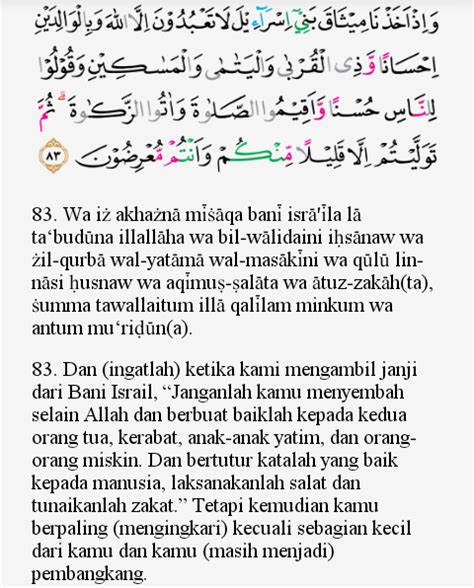 وَاِذْ اَخَذْنَا مِيْثَاقَ بَنِيْٓ اِسْرَاۤءِيْلَ لَا تَعْبُدُوْنَ اِلَّا اللّٰهَ وَبِالْوَالِدَيْنِ
اِحْسَانًا وَّذِى الْقُرْبٰى وَالْيَتٰمٰى وَالْمَسٰكِيْنِ وَقُوْلُوْا
لِلنَّاسِ حُسْنًا وَّاَقِيْمُوا الصَّلٰوةَ وَاٰتُوا الزَّكٰوةَۗ ثُمَّ
تَوَلَّيْتُمْ اِلَّا قَلِيْلًا مِّنْكُمْ وَاَنْتُمْ مُّعْرِضُوْنَ ٨٣
83. Wa iż akhażnā mīṡāqa banī isrā'īla lā
ta‘budūna illallāha wa bil-wālidaini iḥsānaw wa
żil-qurbā wal-yatāmā wal-masākīni wa qūlū lin-
nāsi ḥusnaw wa aqīmuṣ-ṣalāta wa ātuz-zakāh(ta),
ṡumma tawallaitum illā qalīlam minkum wa
antum mu‘riḍūn(a).
83. Dan (ingatlah) ketika kami mengambil janji
dari Bani Israil, “Janganlah kamu menyembah
selain Allah dan berbuat baiklah kepada kedua
orang tua, kerabat, anak-anak yatim, dan orang-
orang miskin. Dan bertutur katalah yang baik
kepada manusia, laksanakanlah salat dan
tunaikanlah zakat.” Tetapi kemudian kamu
berpaling (mengingkari) kecuali sebagian kecil
dari kamu dan kamu (masih menjadi)
pembangkang.